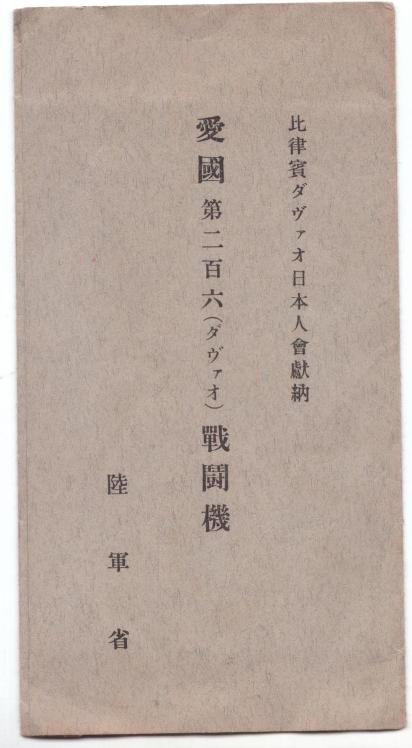 比律賓ダヴァオ日本人會獻納
愛國第二百六(ダヴァオ)戰鬪機
陸軍省